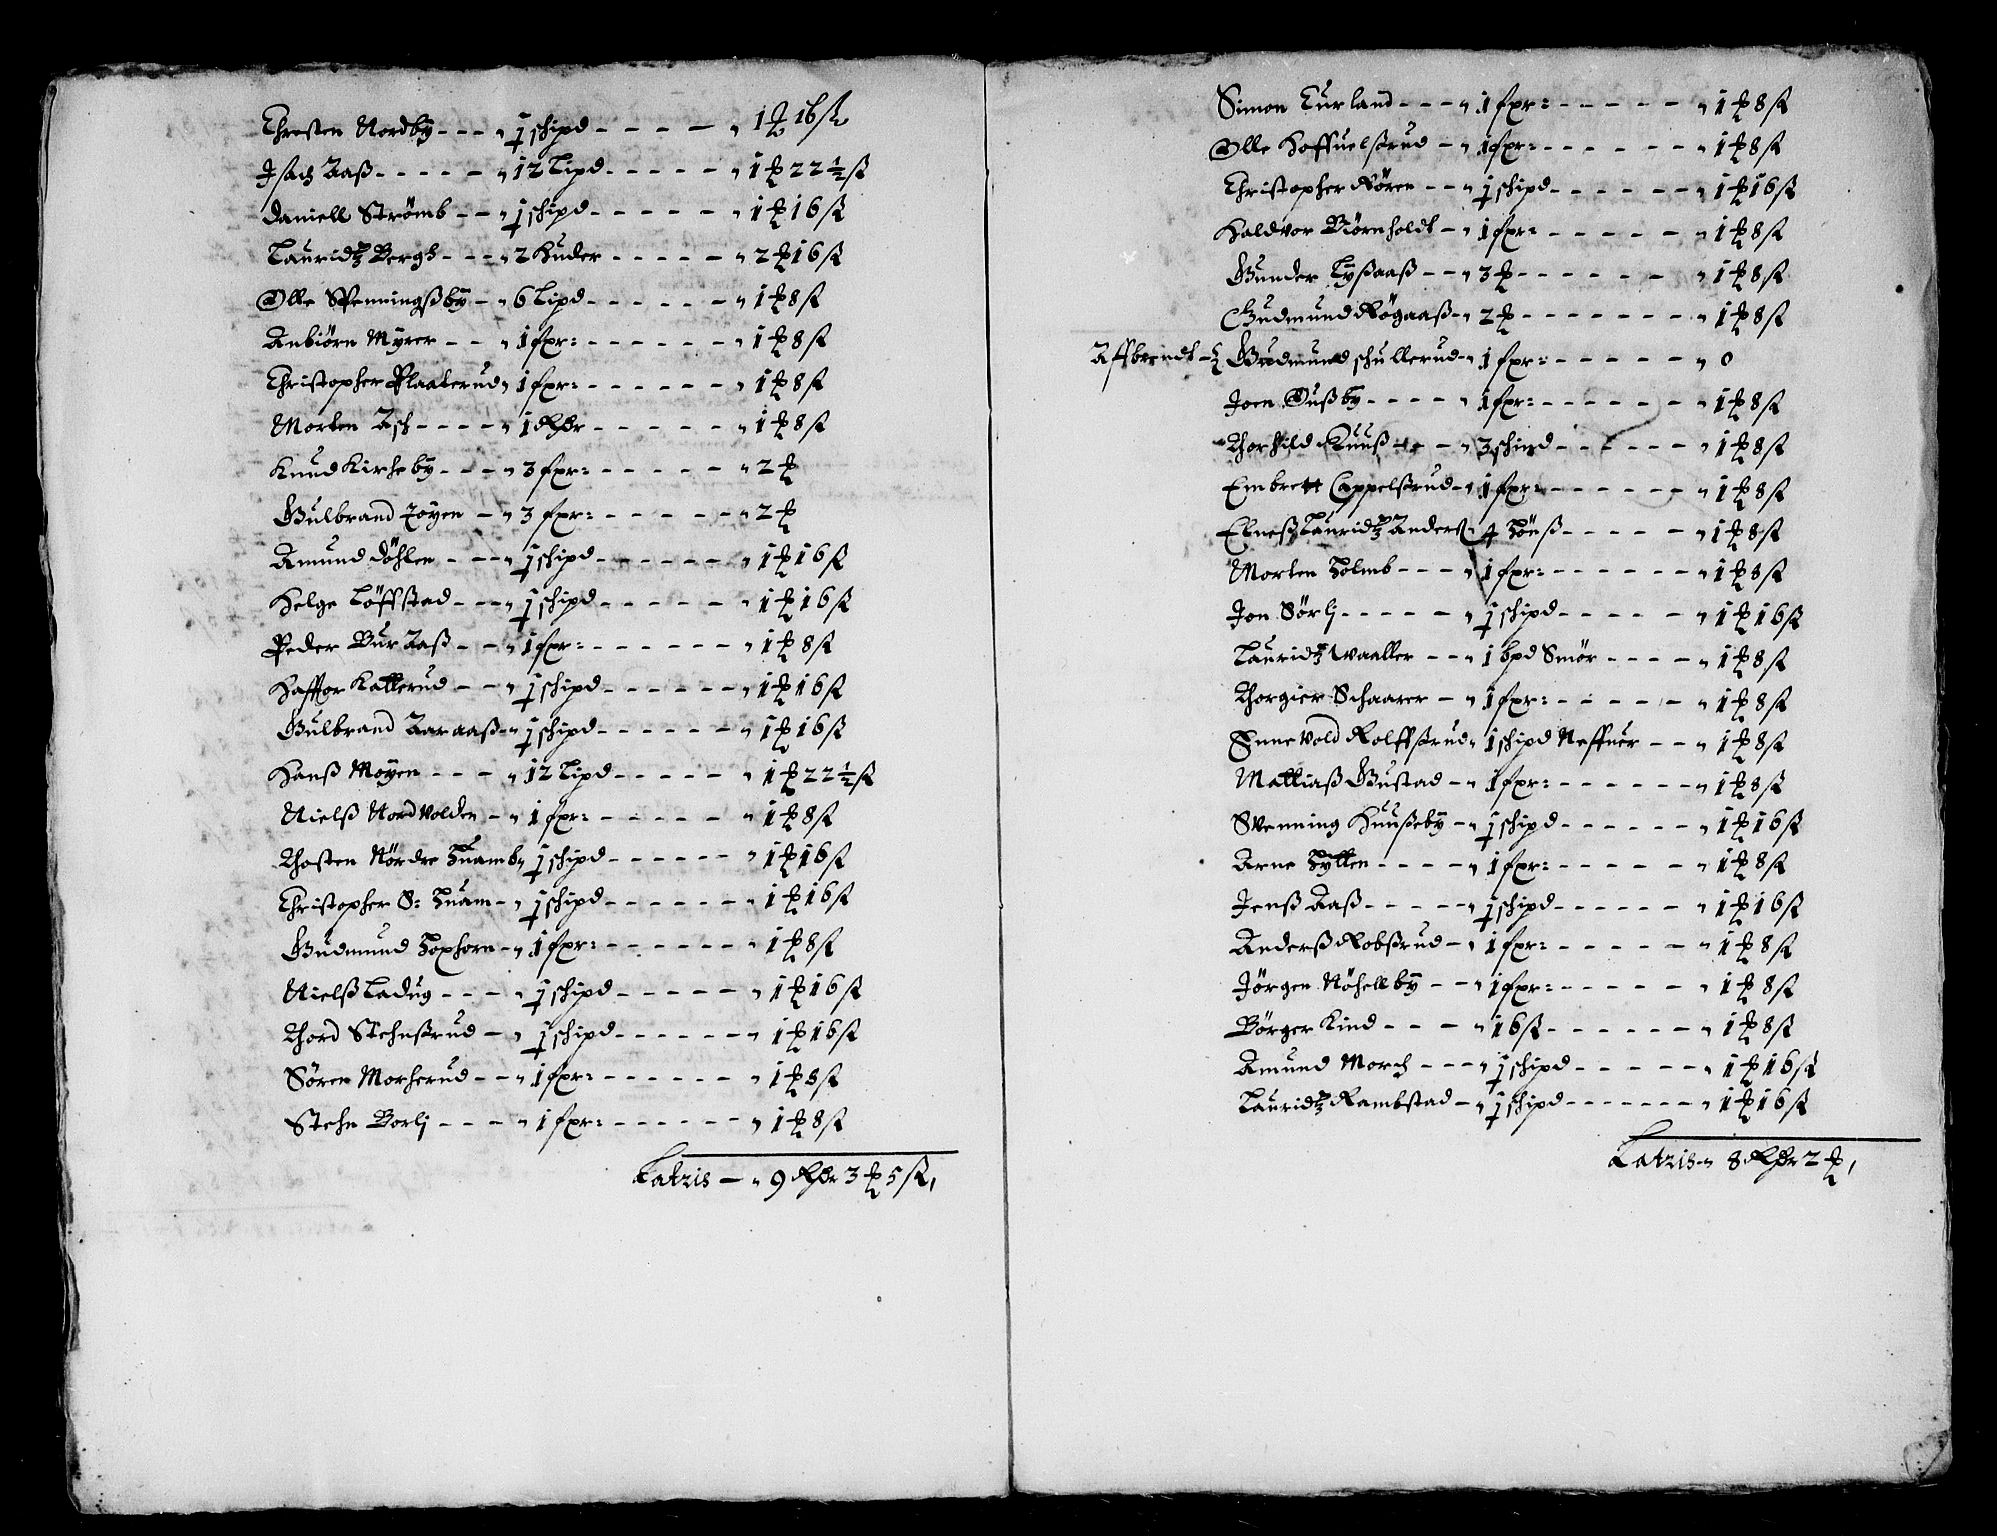 Chresten Nordby - - - „ 1 schipd - - - - - „ 1 ₰ 16 ß
Isach Aaß - - - - - „ 12 Lipd - - - - - „ 1 ₰ 22 ½ ß
Daniell Strömb - - „ 1 schipd - - - - - „ 1 ₰ 16 ß
Lauridtz Bergh - - - „ 2 Huder - - - - - „ 2 ₰ 16 ß
Olle Svenningßby - „ 6 Lipd - - - - - „ 1 ₰ 8 ß
Anbiörn Myrer - - „ 1 fxr: - - - - - „ 1 ₰ 8 ß
Christopher Plaaterud „ 1 fxr: - - - - - „ 1 ₰ 8 ß
Morten Ash - - - - „ 1 Rdr - - - - - „ 1 ₰ 8 ß
Knud Kircheby - - - „ 3 fxr: - - - - - „ 2 ₰
Gulbrand Zöyen - „ 3 fxr: - - - - - „ 2 ₰
Amund Döhlen - - - „ 1 schipd - - - - - „ 1 ₰ 16 ß
Helge Löffstad - - - „ 1 schipd - - - - - „ 1 ₰ 16 ß
Peder Bur Aaß - - „ 1 fxr: - - - - - „ 1 ₰ 8 ß
Haffor Kallerud - - „ 1 schipd - - - - - „ 1 ₰ 16 ß
Gulbrand Aaraaß - „ 1 schipd - - - - - „ 1 ₰ 16 ß
Hanß Moyen - - - „ 12 Lipd - - - - - „ 1 ₰ 22 ½ ß
Nielß Nordvolden - „ 1 fxr: - - - - - „ 1 ₰ 8 ß
Thosten Nördre Huamb „ 1 schipd - - - - - „ 1 ₰ 16 ß
Christopher S: Huam - „ 1 schipd - - - - - „ 1 ₰ 16 ß
Gudmund Hoxhorn - „ 1 fxr: - - - - - „ 1 ₰ 8 ß
Nielß Ladug - - - „ 1 schipd - - - - - „ 1 ₰ 16 ß
Thord Stehnßrud - „ 1 schipd - - - - - „ 1 ₰ 16 ß
Sören Morherud - - „ 1 fxr: - - - - - „ 1 ₰ 8 ß
Stehn Borlj - - - - „ 1 fxr: - - - - - „ 1 ₰ 8 ß
Latris - „ 9 Rdr 3 ₰ 5 ß,
Simon Turland - - - „ 1 fxr: - - - - - „ 1 ₰ 8 ß
Olle Hoffuelßrud - „ 1 fxr: - - - - - „ 1 ₰ 8 ß
Christopher Rören - - „ 1 schipd - - - - - „ 1 ₰ 16 ß
Haldvor Biörnholdt - „ 1 fxr: - - - - - „ 1 ₰ 8 ß
Gunder Lyßaaß - - „ 3 ₰ - - - - - „ 1 ₰ 8 ß
Gudmund Rögaaß - „ 2 ₰ - - - - - „ 1 ₰ 8 ß
Affbrendt - Gudmund Schullerud „ 1 fxr: - - - - - „ 0
Joen Oußby - - - - „ 1 fxr: - - - - - „ 1 ₰ 8 ß
Thorhild Ruuß - - „ 3 schind - - - - - „ 1 ₰ 8 ß
Embrett Cappelßrud - „ 1 fxr: - - - - - „ 1 ₰ 8 ß
Elneß Lauridtz Anderß: 4 Hönß - - - - - „ 1 ₰ 8 ß
Morten Holmb - - - „ 1 fxr: - - - - - „ 1 ₰ 8 ß
Jon Sörlj - - - - - „ 1 schipd - - - - - „ 1 ₰ 16 ß
Lauridtz Waaller - - „ 1 bpd Smör - - - - „ 1 ₰ 8 ß
Thorgier Schaarer - „ 1 fxr: - - - - - „ 1 ₰ 8 ß
Ennevold Rolffßrud „ 1 schipd Neffuer - - „ 1 ₰ 8 ß
Mattiaß Gustad - „ 1 fxr: - - - - - „ 1 ₰ 8 ß
Svenning Knußeby - „ 1 schipd - - - - - „ 1 ₰ 16 ß
Arne Hytten - - - - „ 1 fxr: - - - - - „ 1 ₰ 8 ß
Jenß Aaß - - - - - „ 1 schipd - - - - - „ 1 ₰ 16 ß
Anderß Robßrud - „ 1 fxr: - - - - - „ 1 ₰ 8 ß
Jörgen Nöhellby - - „ 1 fxr: - - - - - „ 1 ₰ 8 ß
Börger Kind - - - - „ 16 ß - - - - - „ 1 ₰ 8 ß
Amund Morch - - - „ 1 schipd - - - - - „ 1 ₰ 16 ß
Lauridtz Rambstad - „ 1 schipd - - - - - „ 1 ₰ 16 ß
Latris - „ 8 Rdr 2 ₰,